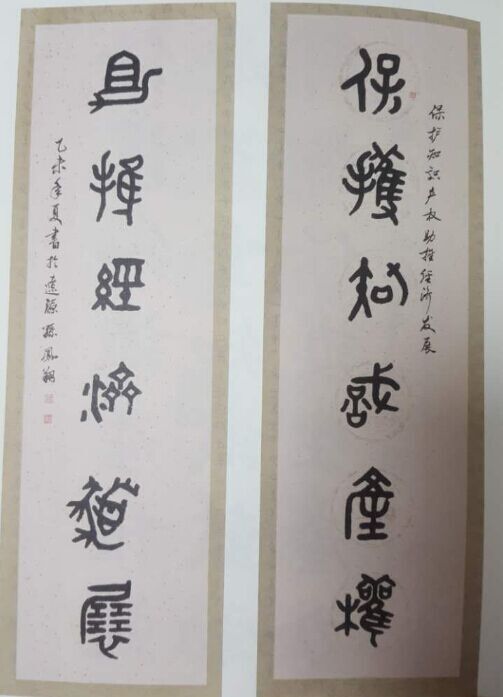 保护知识产权助推经济发展
保護知識產權
助推經濟發展
乙未年夏書於遼源孫鳳翔